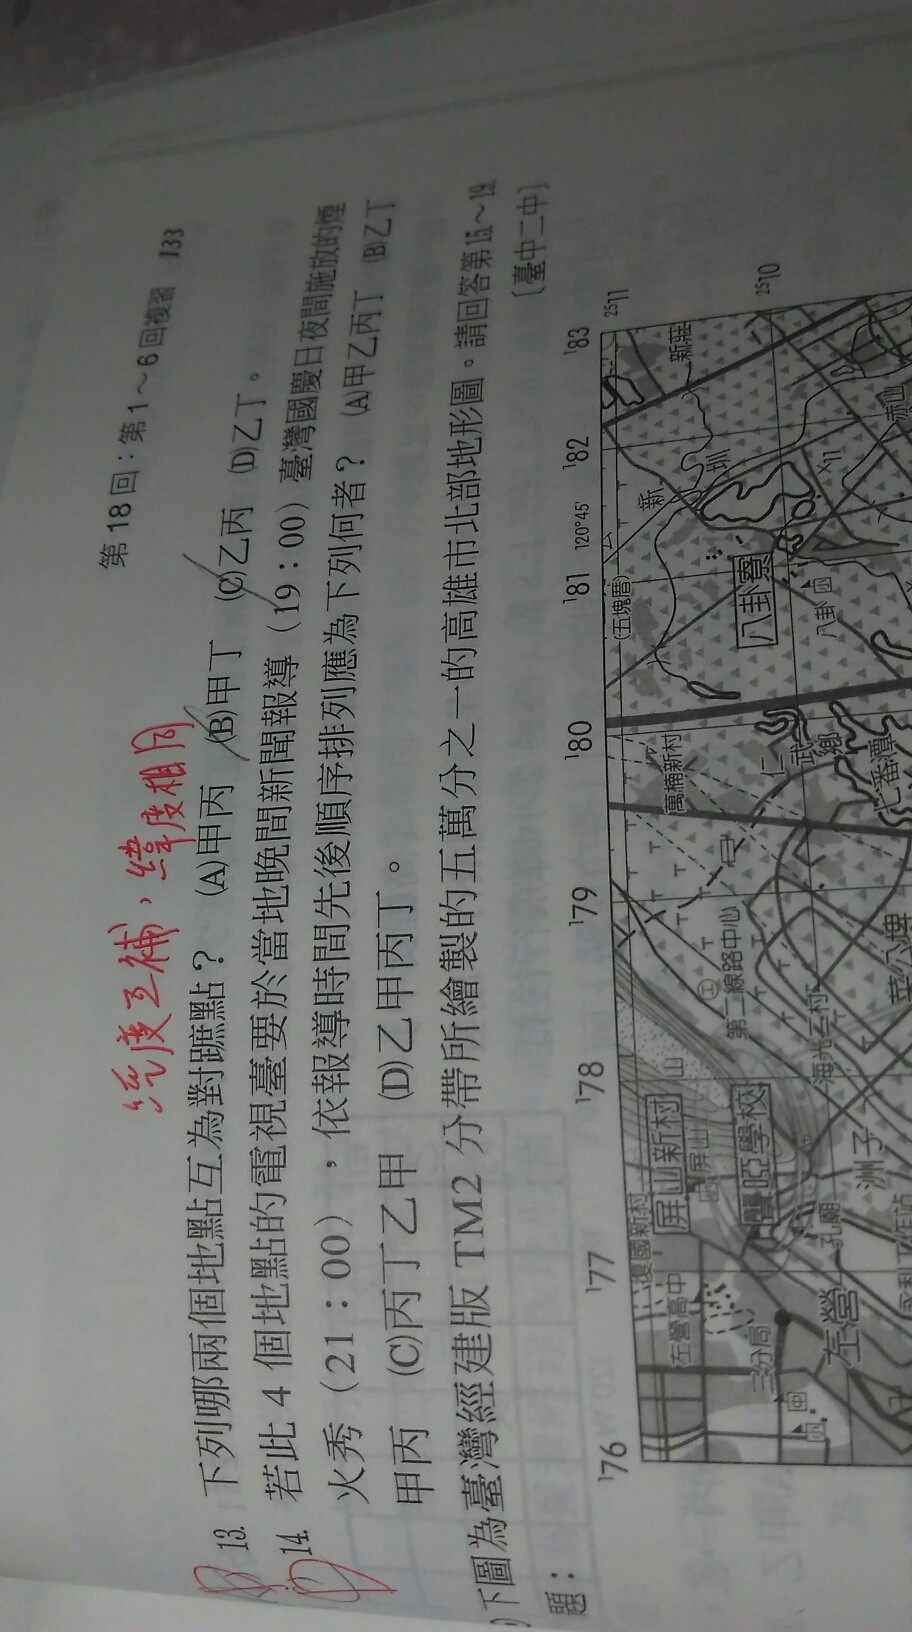 第18回：第1～6回複習 133
經度互補，緯度相同
13. 下列哪兩個地點互為對蹠點？ (A)甲丙 (B)甲丁 (C)乙丙 (D)乙丁。
14. 若此4個地點的電視臺要於當地晚間新聞報導（19：00）臺灣國慶日夜間施放的煙
火秀（21：00），依報導時間先後順序排列應為下列何者？ (A)甲乙丙丁 (B)乙丁
甲丙 (C)丙丁乙甲 (D)乙甲丙丁。
下圖為臺灣經建版TM2分帶所繪製的五萬分之一的高雄市北部地形圖。請回答第15～19
題： 〔臺中二中〕
176 177 178 179 180 181 120°45' 182 183
2511
2510
復國新村
左營高中
屏山新村
屏山
山
萬楠新村
(五塊厝)
新
圳
新莊
三分局
聾啞學校
第二線路中心
八卦寮
左營
孔廟
洲子
海光三村
仁武鄉
八卦
11
七番潭
赤山